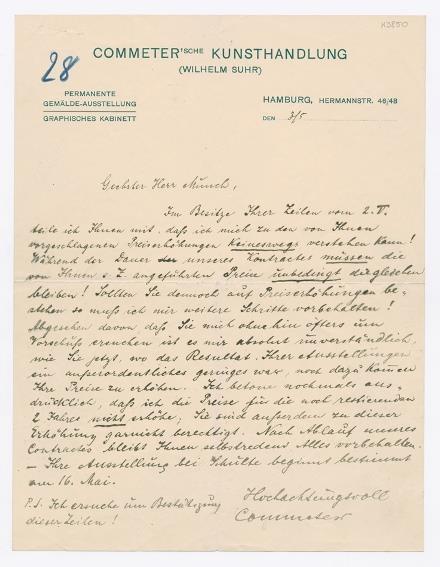 K3850
28
COMMETER'SCHE KUNSTHANDLUNG
(WILHELM SUHR)
PERMANENTE
GEMÄLDE-AUSSTELLUNG
GRAPHISCHES KABINETT
HAMBURG, HERMANNSTR. 46/48
DEN 3/5
Geehrter Herr Munch,
Im Besitze Ihrer Zeilen vom 2.V.
teile ich Ihnen mit, daß ich mich zu den von Ihnen
vorgeschlagenen Preiserhöhungen keineswegs verstehen kann!
Während der Dauer unseres Kontractes müssen die
von Ihnen s. Z. angeführten Preise unbedingt dieselben
bleiben! Sollten Sie dennoch auf Preiserhöhungen be-
stehen so muß ich mir weitere Schritte vorbehalten!
Abgesehen davon daß Sie mich ohnehin öfters um
Vorschuß ersuchen ist es mir absolut unverständlich,
wie Sie jetzt, wo das Resultat Ihrer Ausstellungen
ein außerordentliches geringes war, noch dazu kommen
Ihre Preise zu erhöhen. Ich betone nochmals aus-
drücklich, daß ich die Preise für die noch restierenden
2 Jahre nicht erhöhe; Sie sind außerdem zu dieser
Erhöhung garnicht berechtigt. Nach Ablauf unseres
Contractes bleibt Ihnen selbstredend Alles vorbehalten.
– Ihre Ausstellung bei Schulte beginnt bestimmt
am 16. Mai.
Hochachtungsvoll
Commeter
P.S. Ich ersuche um Bestätigung
dieser Zeilen!